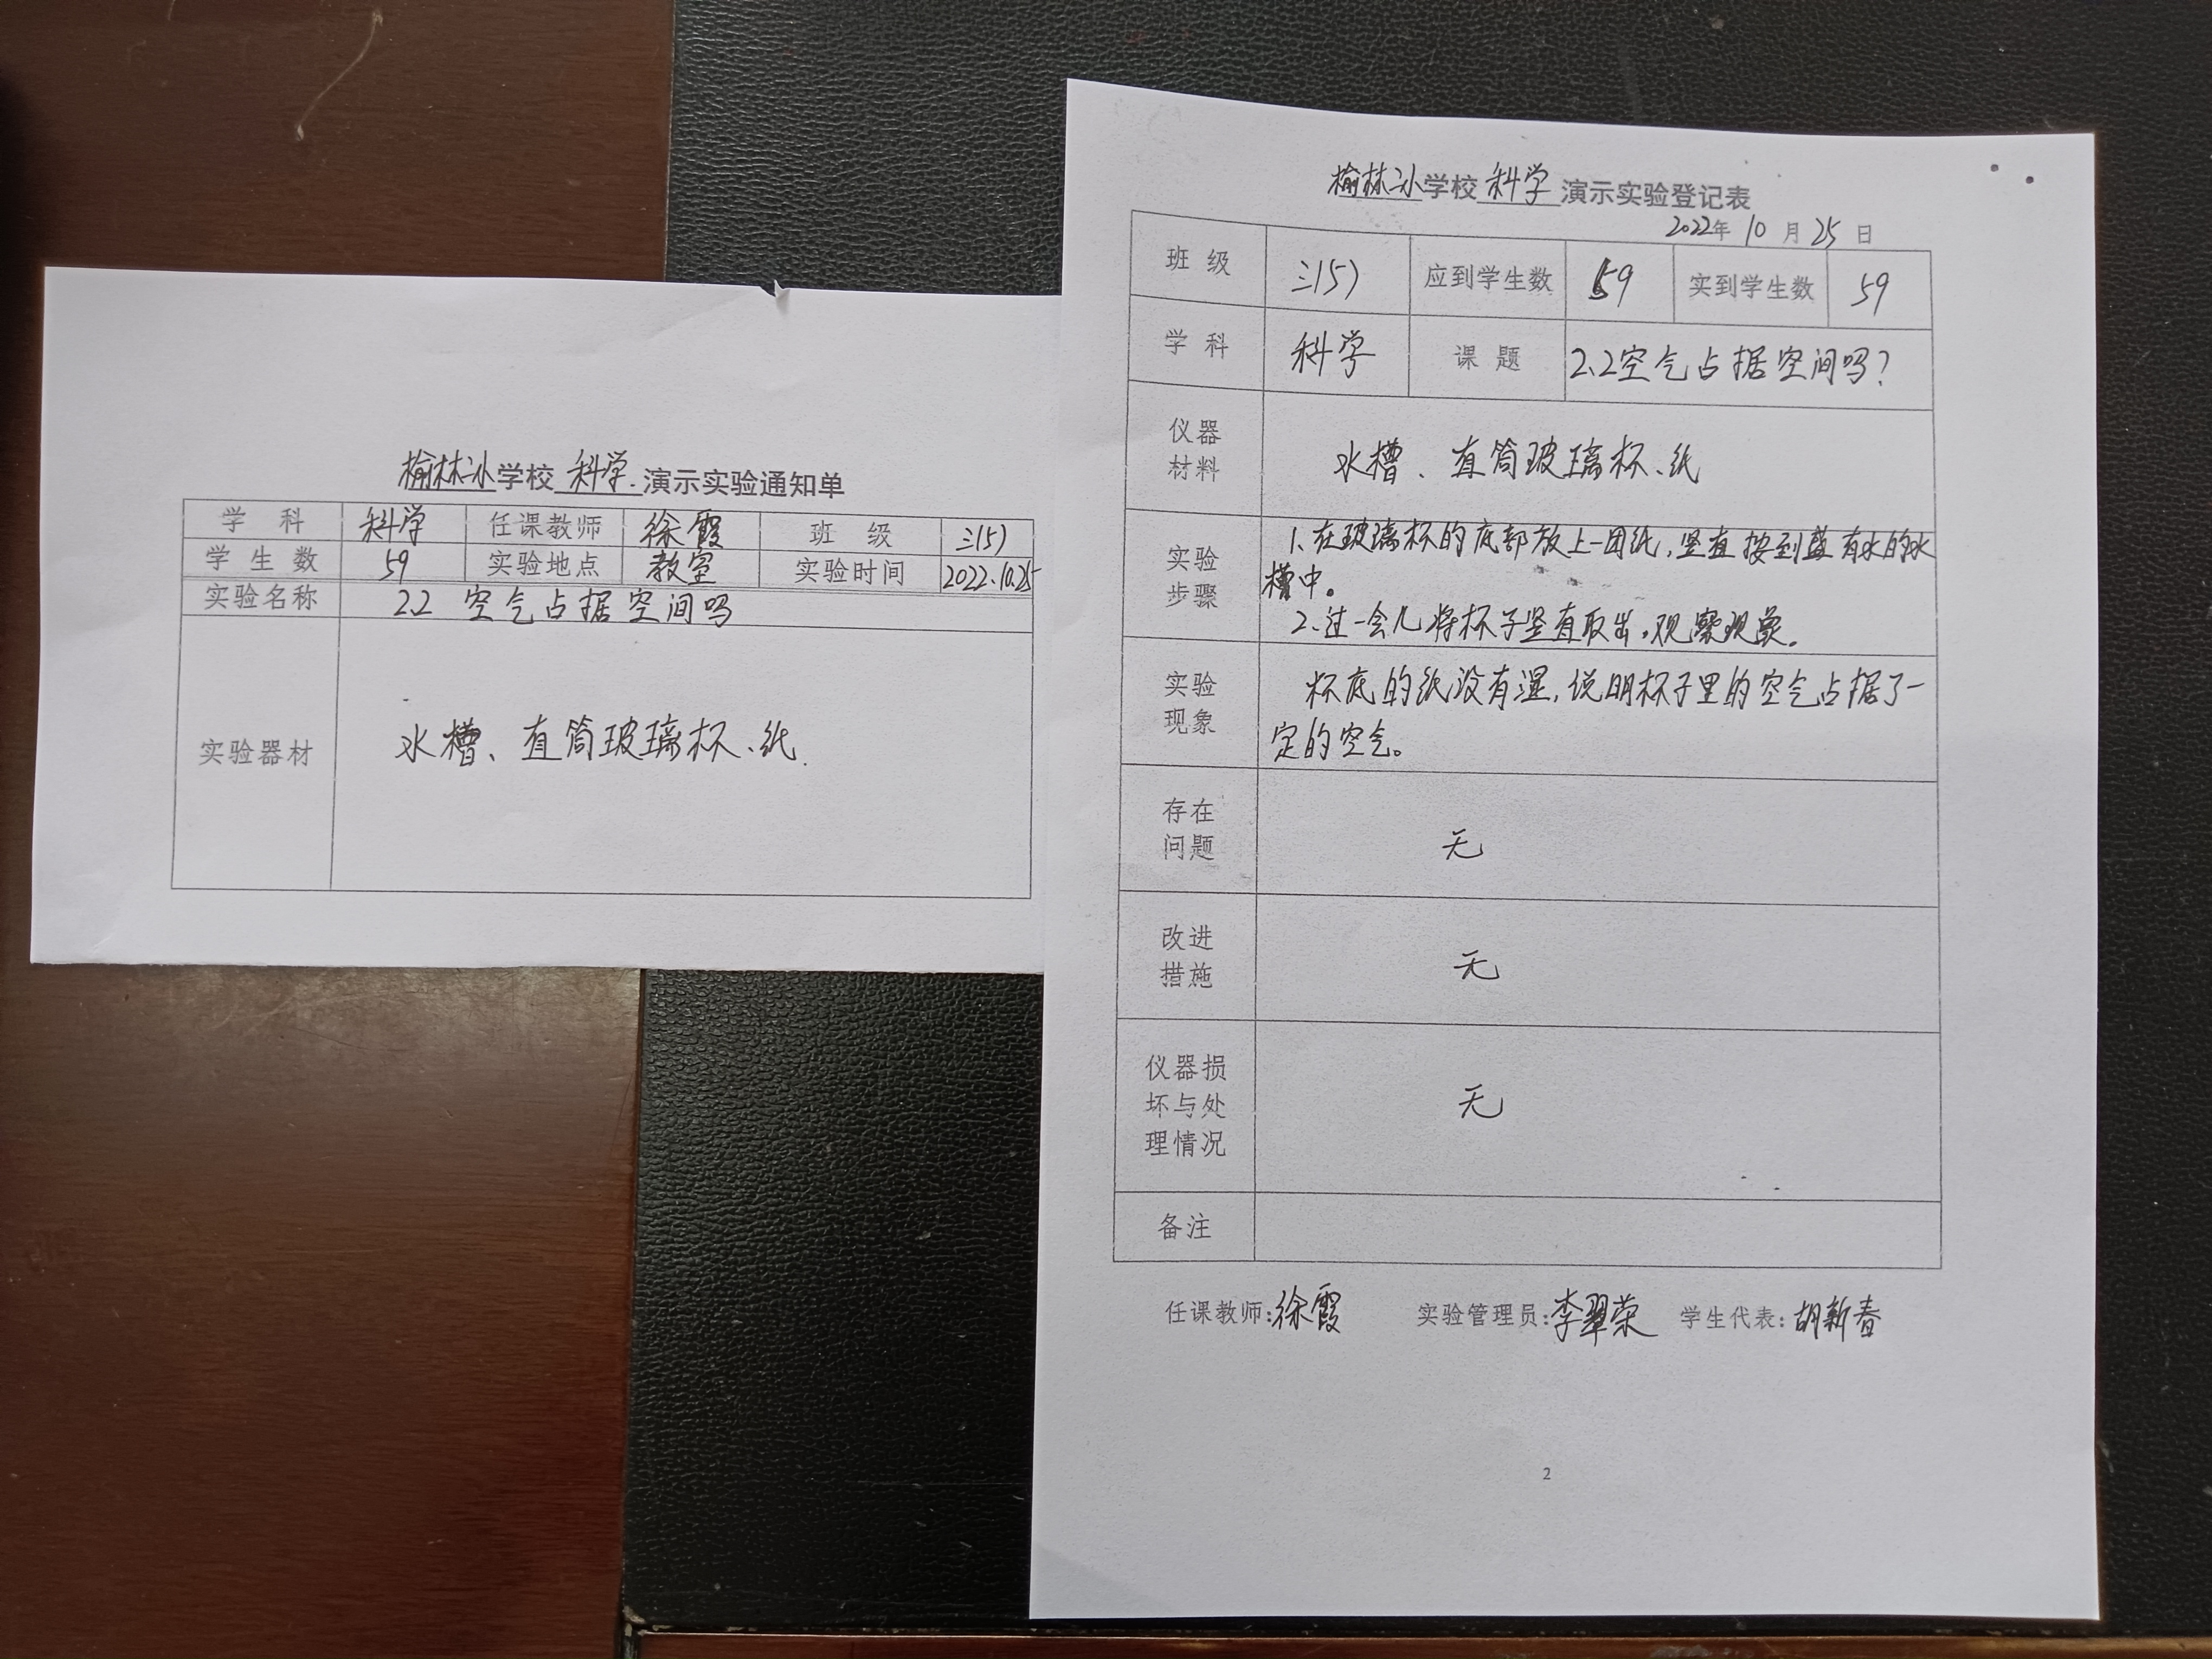 榆林二小学校 科学 演示实验通知单
学 科 科学 任课教师 徐霞 班 级 三(5)
学 生 数 59 实验地点 教室 实验时间 2022.10.25
实验名称 2.2 空气占据空间吗
实验器材 水槽、直筒玻璃杯、纸.
榆林二小学校 科学 演示实验登记表
2022年 10 月 25 日
班 级 三(5) 应到学生数 59 实到学生数 59
学 科 科学 课 题 2.2空气占据空间吗?
仪器
材料
水槽、直筒玻璃杯、纸
实验
步骤
1、在玻璃杯的底部放上一团纸,竖直按到盛有水的水
槽中。
2、过一会儿将杯子竖直取出,观察现象。
实验
现象
杯底的纸没有湿,说明杯子里的空气占据了一
定的空气。
存在
问题
无
改进
措施
无
仪器损
坏与处
理情况
无
备注
任课教师:徐霞 实验管理员:李翠荣 学生代表:胡新春
2